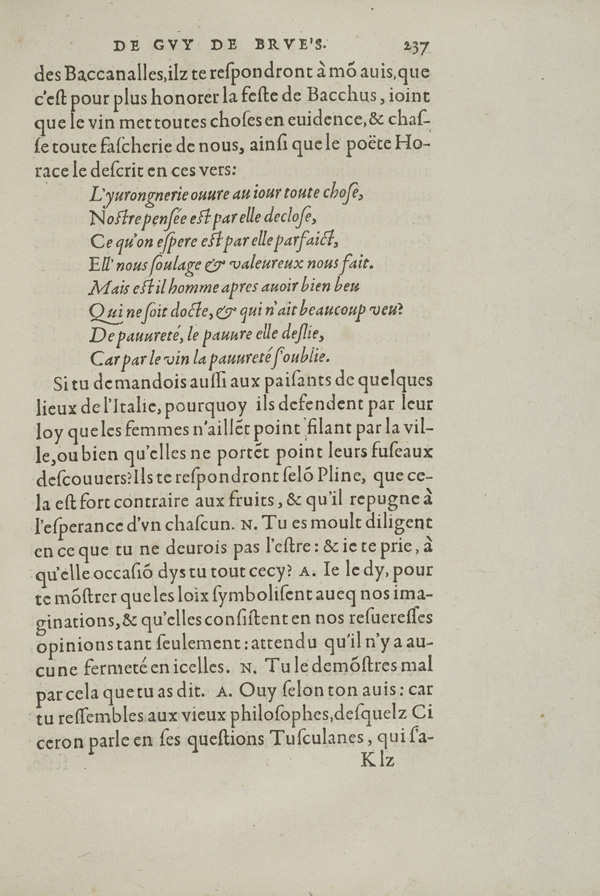 DE GVY DE BRVE'S. 237
des Baccanalles,ilz te reſpondront à mõ auis,que
c'eſt pour plus honorer la feſte de Bacchus, ioint
que le vin met toutes choſes en euidence,& chaſ-
ſe toute faſcherie de nous, ainſi que le poëte Ho-
race le deſcrit en ces vers:
L'yurongnerie ouure au iour toute choſe,
Noſtre penſée eſt par elle decloſe,
Ce qu'on eſpere eſt par elle parfaict,
Ell' nous ſoulage & valeureux nous fait.
Mais eſt il homme apres auoir bien beu
Qui ne ſoit docte, & qui n'ait beaucoup veu?
De pauureté, le pauure elle deſlie,
Car par le vin la pauureté s'oublie.
Si tu demandois auſſi aux paiſants de quelques
lieux de l'Italie, pourquoy ils defendent par leur
loy que les femmes n'aillẽt point filant par la vil-
le,ou bien qu'elles ne portẽt point leurs fuſeaux
deſcouuers?Ils te reſpondront ſelõ Pline, que ce-
la eſt fort contraire aux fruits, & qu'il repugne à
l'eſperance d'vn chaſcun. N. Tu es moult diligent
en ce que tu ne deurois pas l'eſtre: & ie te prie, à
qu'elle occaſiõ dys tu tout cecy? A. Ie le dy, pour
te mõſtrer que les loix ſymboliſent aueq nos ima-
ginations,& qu'elles conſiſtent en nos reſuereſſes
opinions tant ſeulement: attendu qu'il n'y a au-
cune fermeté en icelles. N. Tu le demõſtres mal
par cela que tu as dit. A. Ouy ſelon ton auis: car
tu reſſembles aux vieux philoſophes,deſquelz Ci
ceron parle en ſes queſtions Tuſculanes, qui ſa-
Klz